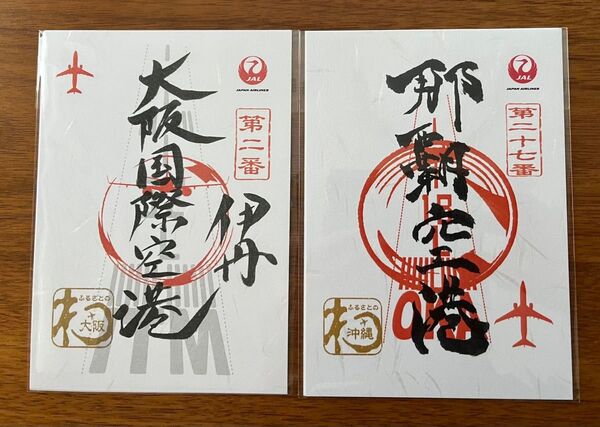 大阪国際空港
伊丹
JAL
JAPAN AIRLINES
第二番
ふるさとの
大阪
那覇空港
JAL
JAPAN AIRLINES
第二十七番
ふるさとの
沖縄